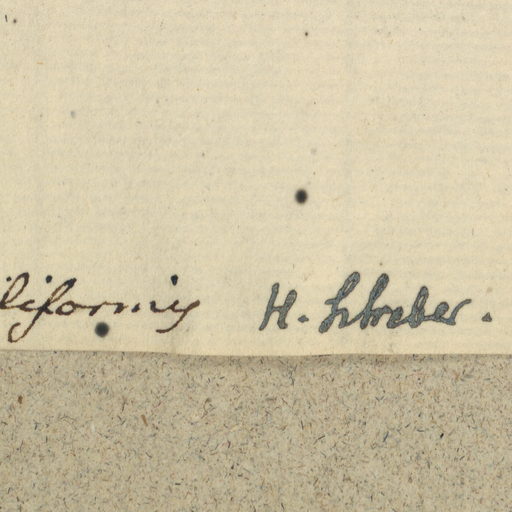 iliformis H. Schreber.